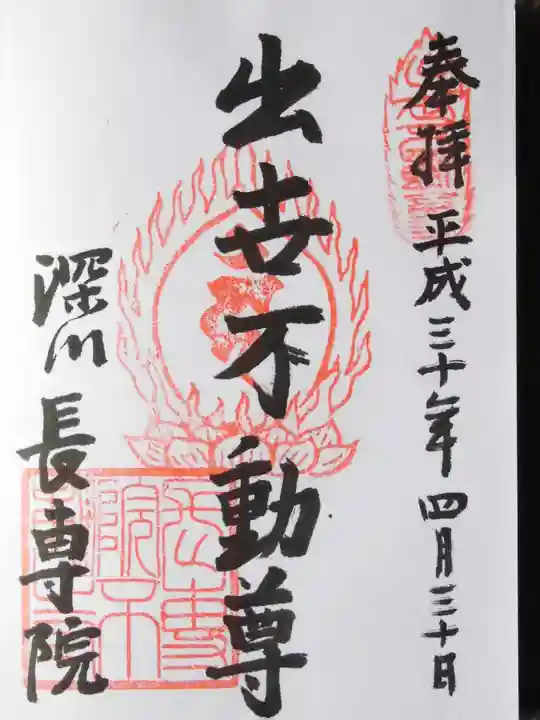 奉拝 平成三十年 四月三十日
出世不動尊
深川 長専院